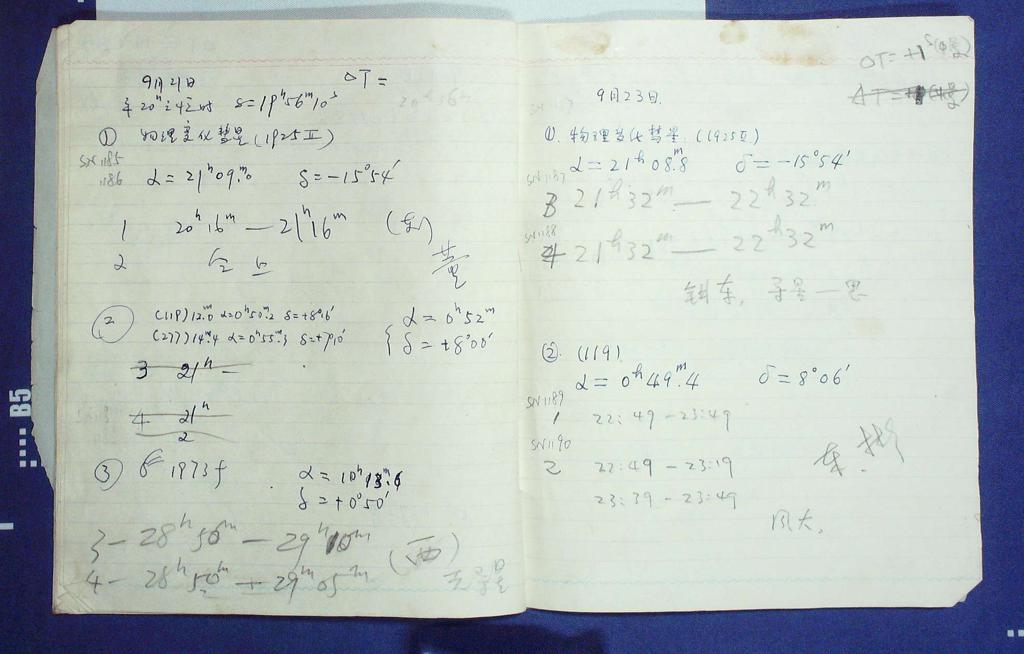 9月21日 ΔT=
20ʰ 时 S=19ʰ56ᵐ10ˢ
① 物理变化彗星(1925 II)
SN1185
1186 α=21ʰ09.ᵐ0 δ=-15°54′
1 20ʰ16ᵐ — 21ʰ16ᵐ (东)
2 仝上
② (119)12.ᵐ0 α=0ʰ50.ᵐ2 δ=+8°.6′ α=0ʰ52ᵐ
(277)14.ᵐ4 α=0ʰ55.ᵐ3 δ=+7°10′ δ=+8°00′
3 21ʰ —
4 21ʰ
2
③ 1973f α=10ʰ13.ᵐ6
δ=+0°50′
3 — 28ʰ50ᵐ — 29ʰ10ᵐ (西)
4 — 28ʰ50ᵐ + 29ᵐ05ᵐ 无导星
ΔT=+1ˢ
ΔT=+
9月23日.
①. 物理变化彗星(1925 II.)
α=21ʰ08.ᵐ8 δ=-15°54′
SN1187
3 21ʰ32ᵐ — 22ʰ32ᵐ
SN1188
4 21ʰ32ᵐ — 22ʰ32ᵐ
导星一
②. (119)
α=0ʰ49.ᵐ4 δ=8°06′
SN1189
1 22:49-23:49
SN1190
2 22:49-23:19
23:39-23:49
风大.
B5